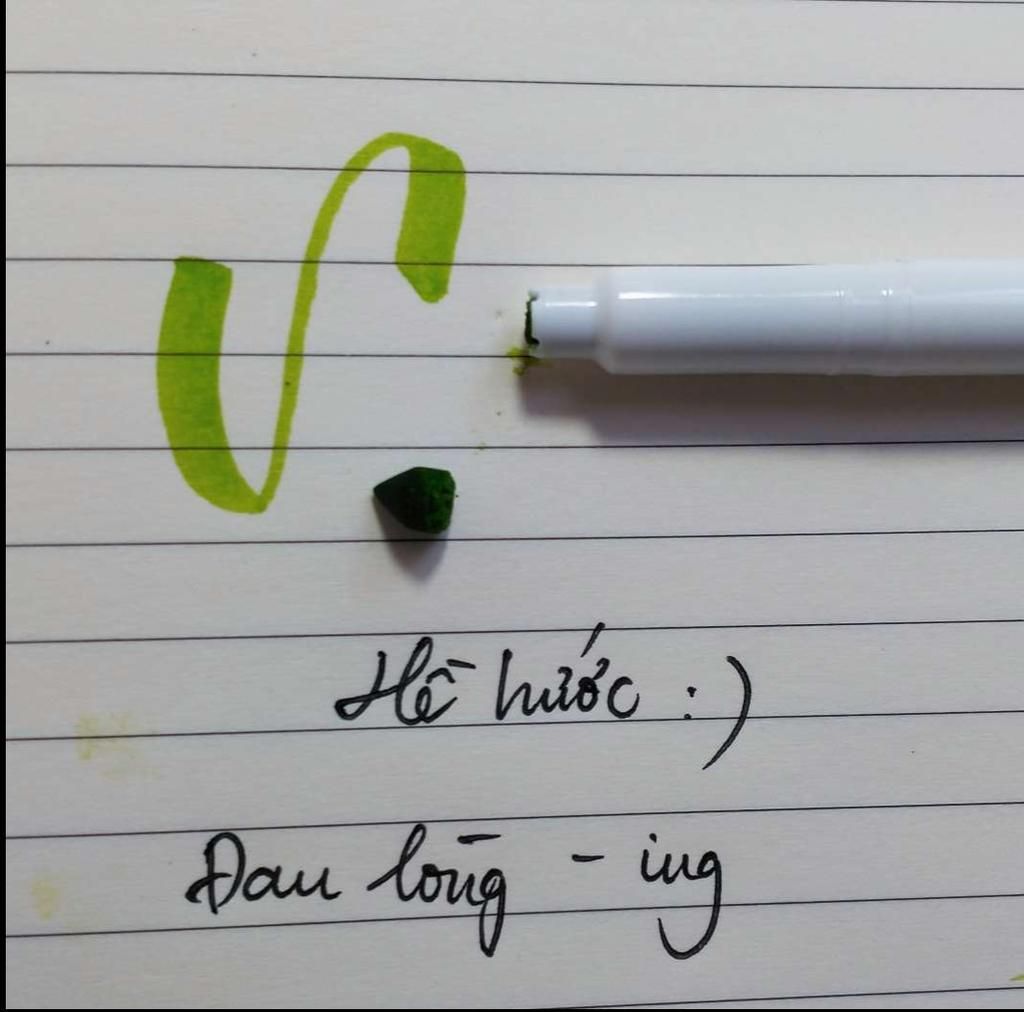 Hề hước :)
Đau lòng - ing